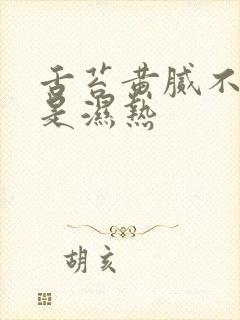 舌苔黄腻不
是濕熱
胡亥